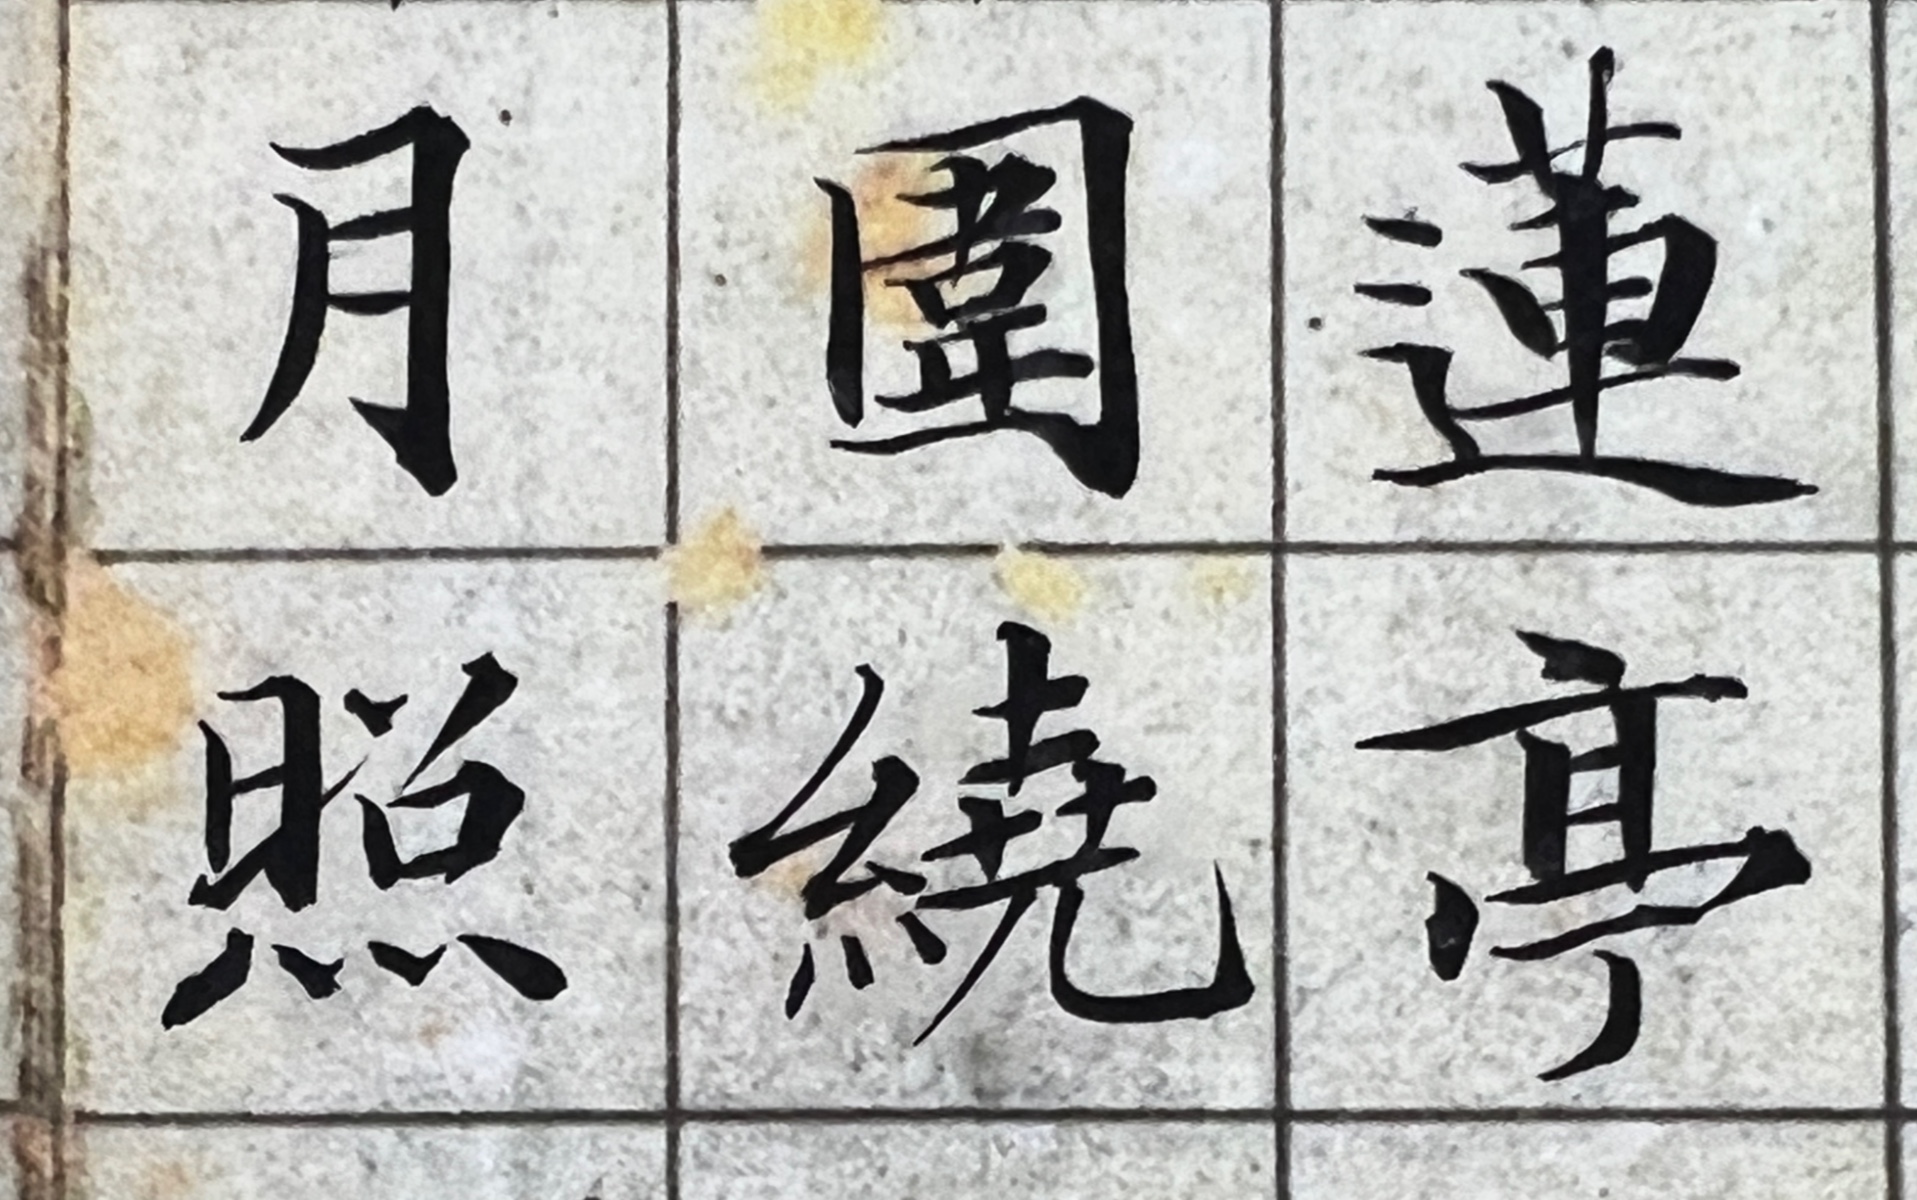 蓮亭
圍繞
月照